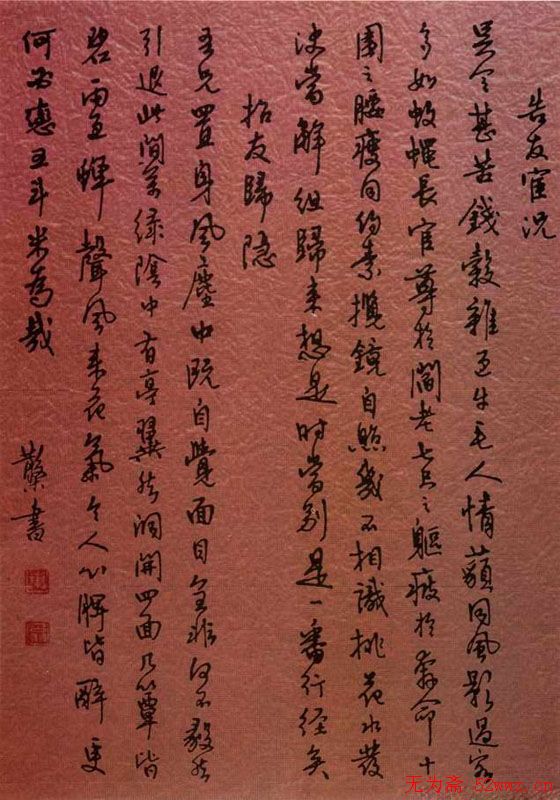 告友宦况
吴令甚苦錢穀雜過牛毛人情同風影過客
多如蚊蠅長官尊於閻老七尺之軀疲於奔命十
圍之腰瘦同約素攬鏡自照幾不相識桃花水發
決當解組歸来想是時當別是一番行徑矣
招友歸隐
吾兄置身風塵中既自覺面目全非何不毅然
引退此間萬緑陰中有亭翼然洞開四面几簟皆
碧雨過蟬聲風来花氣令人心脾皆醉更
何必戀五斗米為哉
書
无为斋 52wwz.cn